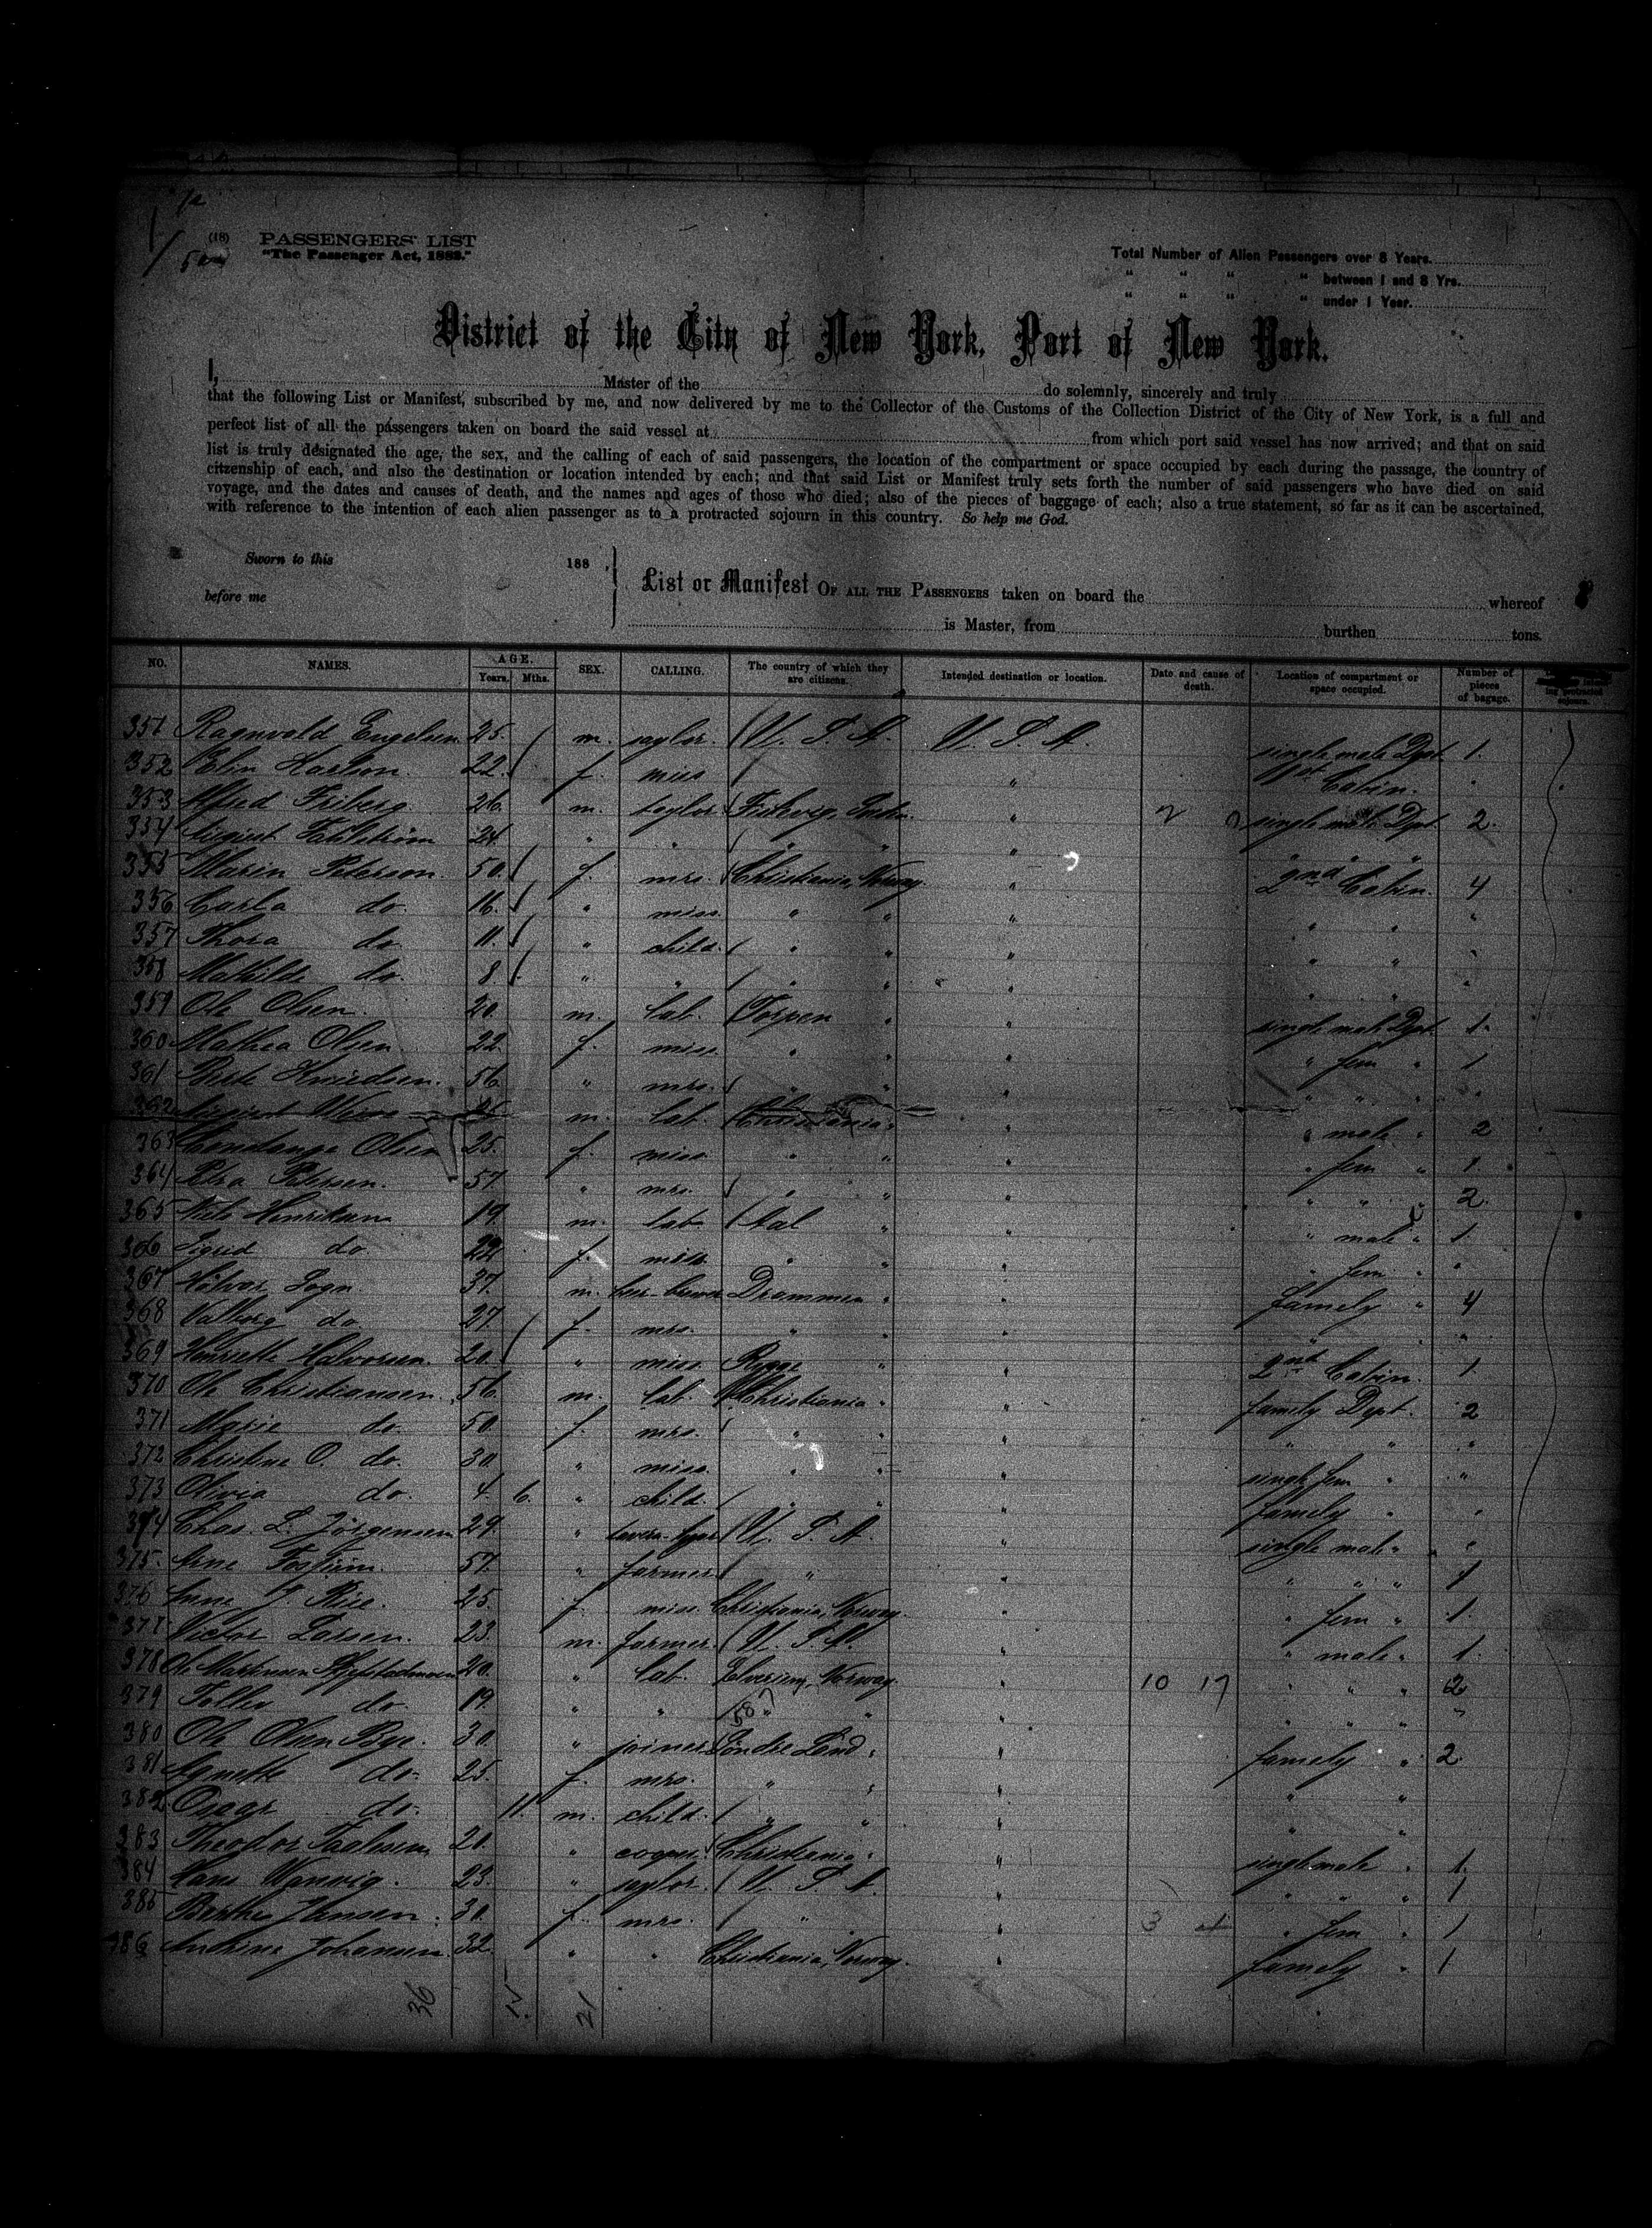 (18) PASSENGERS' LIST
"The Passenger Act, 1882."
Total Number of Alien Passengers over 8 Years.
" " " " between 1 and 8 Yrs.
" " " " under 1 Year.
District of the City of New York, Port of New York.
I, Master of the do solemnly, sincerely and truly
that the following List or Manifest, subscribed by me, and now delivered by me to the Collector of the Customs of the Collection District of the City of New York, is a full and
perfect list of all the passengers taken on board the said vessel at from which port said vessel has now arrived; and that on said
list is truly designated the age, the sex, and the calling of each of said passengers, the location of the compartment or space occupied by each during the passage, the country of
citzenship of each, and also the destination or location intended by each; and that said List or Manifest truly sets forth the number of said passengers who have died on said
voyage, and the dates and causes of death, and the names and ages of those who died; also of the pieces of baggage of each; also a true statement, so far as it can be ascertained,
with reference to the intention of each alien passenger as to a protracted sojourn in this country. So help me God.
Sworn to this 188
before me
List or Manifest OF ALL THE PASSENGERS taken on board the whereof
is Master, from burthen tons.
NO. NAMES. AGE. Years. Mths. SEX. CALLING. The country of which they are citizens. Intended destination or location. Date and cause of death. Location of compartment or space occupied. Number of pieces of bagage. protracted sojourn.
351 Ragnvald Engelsen 25. m. saylor. U. S. A. U. S. A. single male Dpt. 1.
352 Elin Karlson. 22. f. miss " Cabin.
353 Alfred Friberg. 26. m. saylor. " single male Dpt. 2.
354 24. " " " "
355 Marin Peterson. 50. f. mrs. Christiania, Norway. " 2nd Cabin. 4
356 Carla do. 16. " miss. " " " " " "
357 Thora do. 11. " child. " " " " "
358 Mathilde do. 8. " " " " " " "
359 Ole Olsen. 20. m. lab. Torpen " " single male Dpt. 1.
360 Mathea Olsen 22. f. miss. " " " " fem " 1
361 56. " mrs. " " " " " "
362 m. lab. Christiania " " " male " 2
363 Olsen 25. f. miss " " " " fem " 1.
364 Petra Petersen. 57. " mrs. " " " " " " 2.
365 Niels Henriksen 19. m. lab. Aal " " " male " 1.
366 Sigrid do. 22 f. miss. " " " " fem " "
367 Sogn. 37. m. beer-brewer Drammen " " famely " 4
368 Valborg do. 27. f. mrs. " " " " "
369 Henriette Halvorsen. 20. " miss. Rygge " " 2nd Cabin. 1.
370 Ole Christiansen. 56. m. lab. Christiania " " family Dept. 2
371 Marie do. 50. f. mrs. " " " " " "
372 Christine O. do. 30. " miss. " " " single fem " "
373 Olivia do. 4. 6. " child. " " " famely " "
374 Chas. L. Jörgensen 29. " U. S. A. " single male " "
375. Arne 57. " farmer. " " " " " 1
376 25. f. miss. Christiania, Norway. " " fem " 1.
377 Victor Larsen. 23. m. farmer. U. S. A. " " male " 1.
378 Ole Martinsen 20. " lab. Elverum, Norway. " 10 17 " " " 2
379 do. 19. " " " " " " " " "
380 Ole Olsen Bye. 30 " joiner Söndre Land. " famely " 2.
381 Agnette do. 25. f. mrs. " " " " "
382 do. 11. m. child. " " " " "
383 Theodor 20. " Christiania. " single male " 1.
384 Hans 23. " saylor. U. S. A. " " " " 1
385 Berthe Jensen. 30. f. mrs. " " 3 " fem " 1
386 Johansen 32. " " Christiania, Norway. " famely " 1
36 15 21